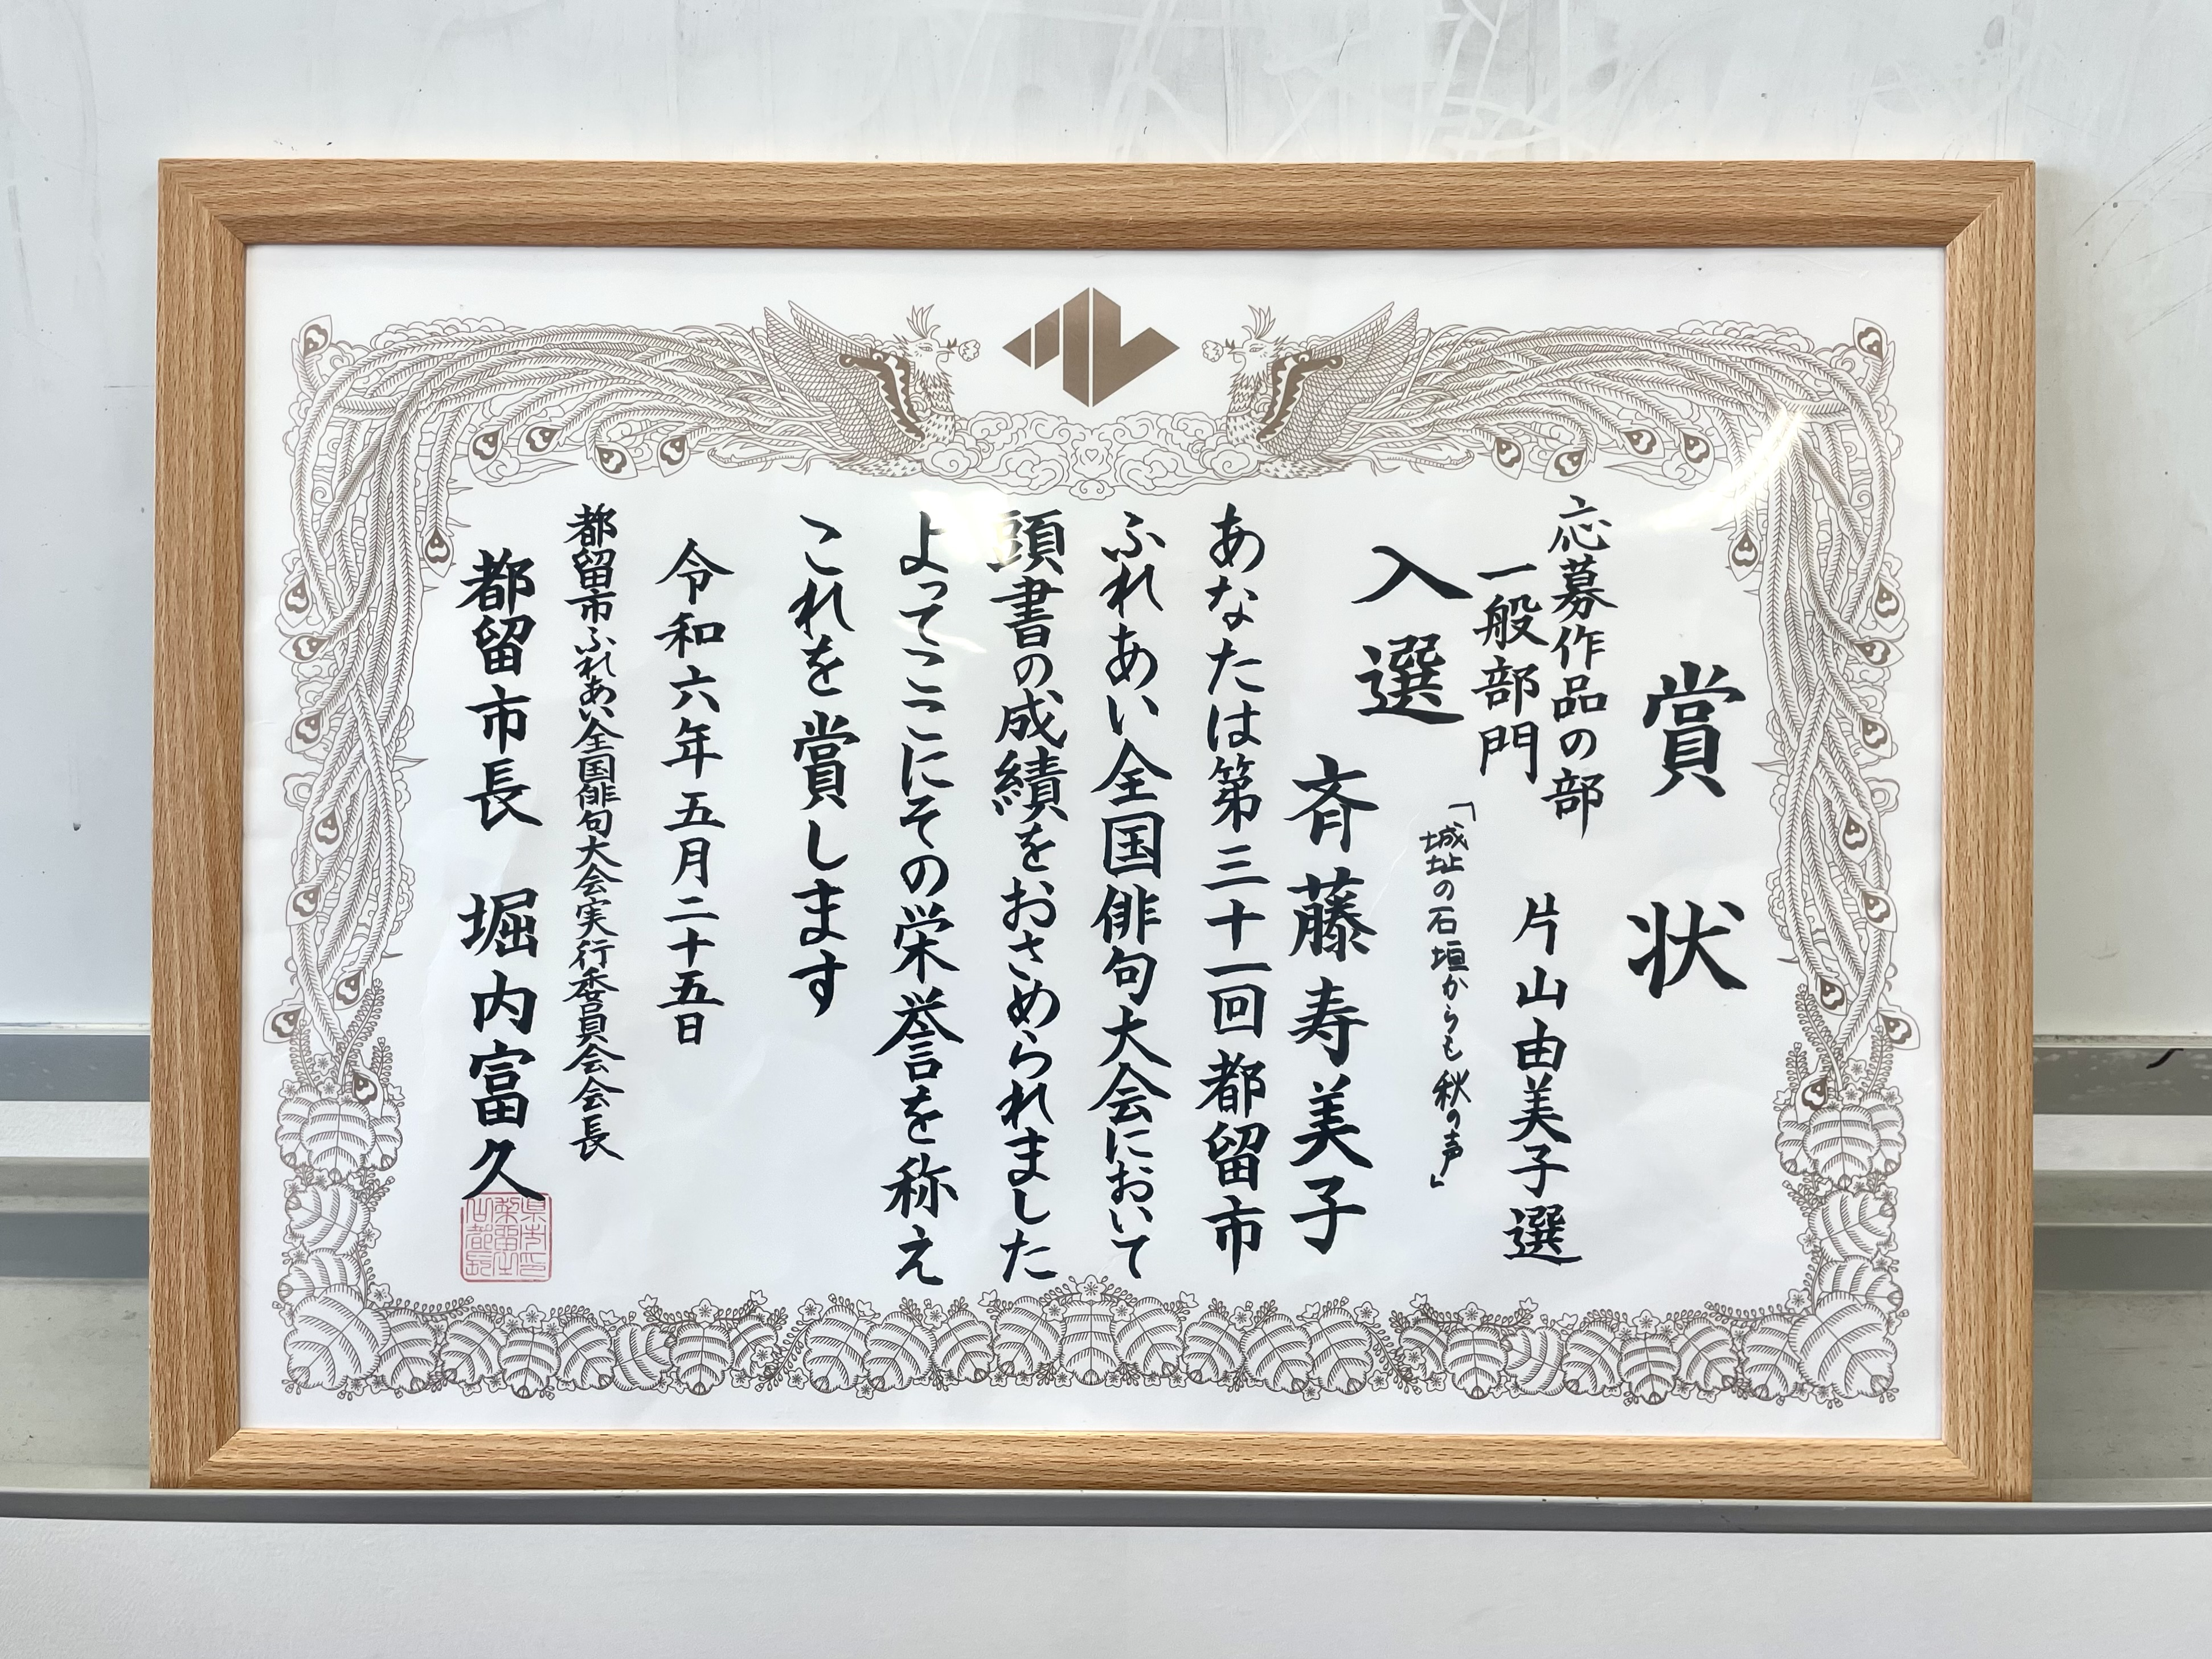 賞状
応募作品の部
一般部門
片山由美子選
入選
「城址の石垣からも秋の声」
斉藤寿美子
あなたは第三十一回都留市
ふれあい全国俳句大会において
頭書の成績をおさめられました
よってここにその栄誉を称え
これを賞します
令和六年五月二十五日
都留市ふれあい全国俳句大会実行委員会会長
都留市長 堀内富久